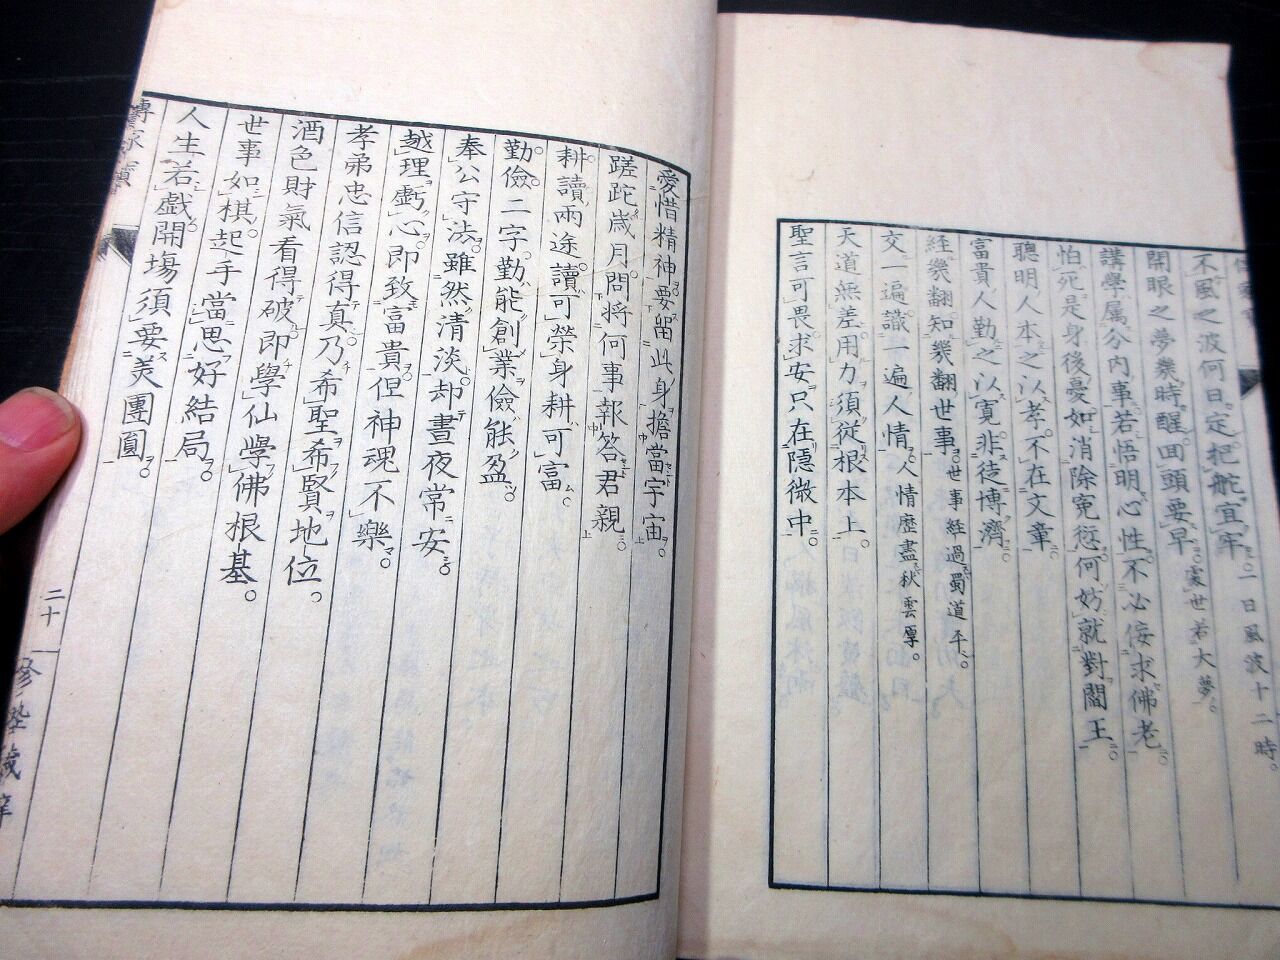 不風之波何日定把舵宜牢。一日風波十二時。
開眼之夢幾時醒回頭要早。處世若大夢。
講學屬分內事若悟明心性不必侫求佛老。
怕死是身後憂如消除寃愆何妨就對閻王。
聰明人本之以孝不在文章。
富貴人勤之以寬非徒博濟。
經幾翻知幾翻世事。世事經過蜀道平。
交一遍識一遍人情。人情歷盡秋雲厚。
天道無差用力須從根本上。
聖言可畏求安只在隱微中。
愛惜精神要留此身擔當宇宙。
蹉跎歲月問將何事報答君親。
耕讀兩途讀可榮身耕可富。
勤儉二字勤能創業儉能盈。
奉公守法雖然清淡却晝夜常安。
越理虧心即致富貴但神魂不樂。
孝弟忠信認得真乃希聖希賢地位。
酒色財氣看得破即學仙學佛根基。
世事如棋起手當思好結局。
人生若戲開場須要美團圓。
傳家寶
二十